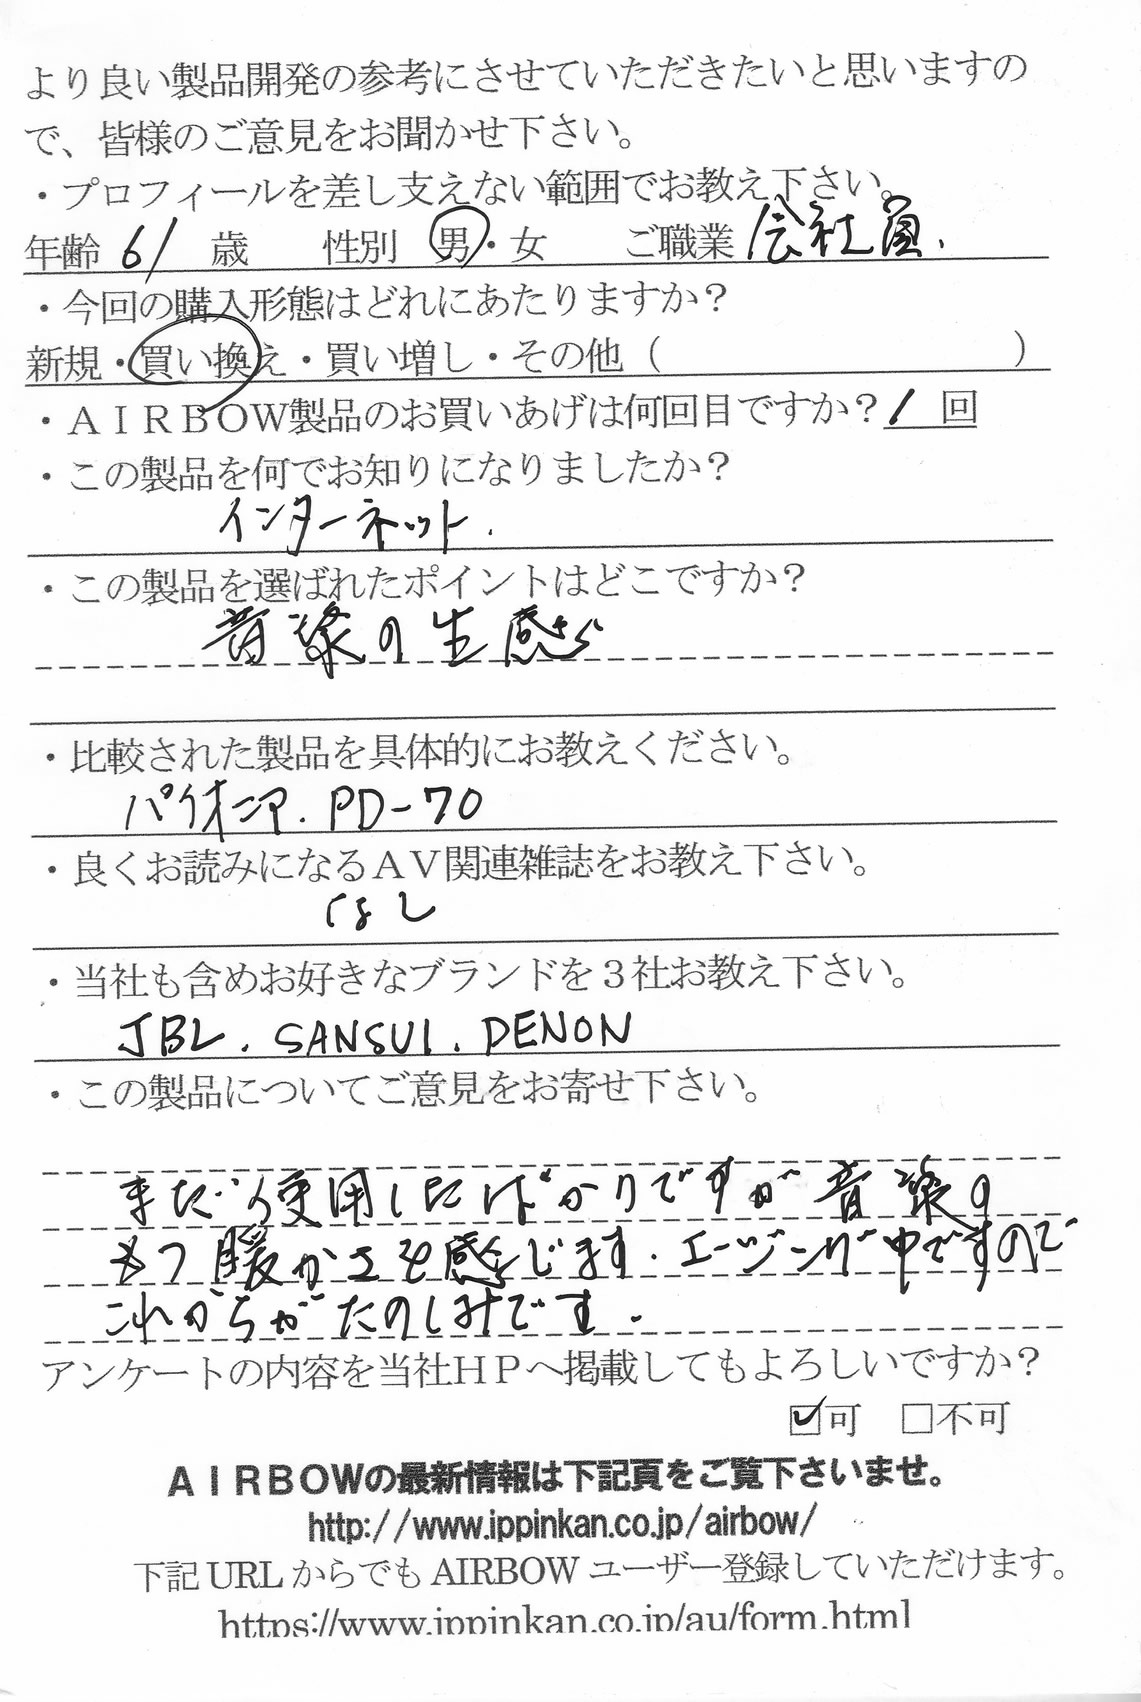 より良い製品開発の参考にさせていただきたいと思いますの
で、皆様のご意見をお聞かせ下さい。
・プロフィールを差し支えない範囲でお教え下さい。
年齢 61 歳 性別 男・女 ご職業 会社員.
・今回の購入形態はどれにあたりますか？
新規・買い換え・買い増し・その他（ ）
・ＡＩＲＢＯＷ製品のお買いあげは何回目ですか？ 1 回
・この製品を何でお知りになりましたか？
インターネット.
・この製品を選ばれたポイントはどこですか？
音楽の生感さ
・比較された製品を具体的にお教えください。
パイオニア. PD-70
・良くお読みになるＡＶ関連雑誌をお教え下さい。
なし
・当社も含めお好きなブランドを３社お教え下さい。
JBL. SANSUI. DENON
・この製品についてご意見をお寄せ下さい。
まだ使用したばかりですが音楽の
もつ暖かさを感じます. エージング中ですので
これからがたのしみです.
アンケートの内容を当社ＨＰへ掲載してもよろしいですか？
☑可 □不可
ＡＩＲＢＯＷの最新情報は下記頁をご覧下さいませ。
http://www.ippinkan.co.jp/airbow/
下記 URL からでも AIRBOW ユーザー登録していただけます。
https://www.ippinkan.co.jp/au/form.html